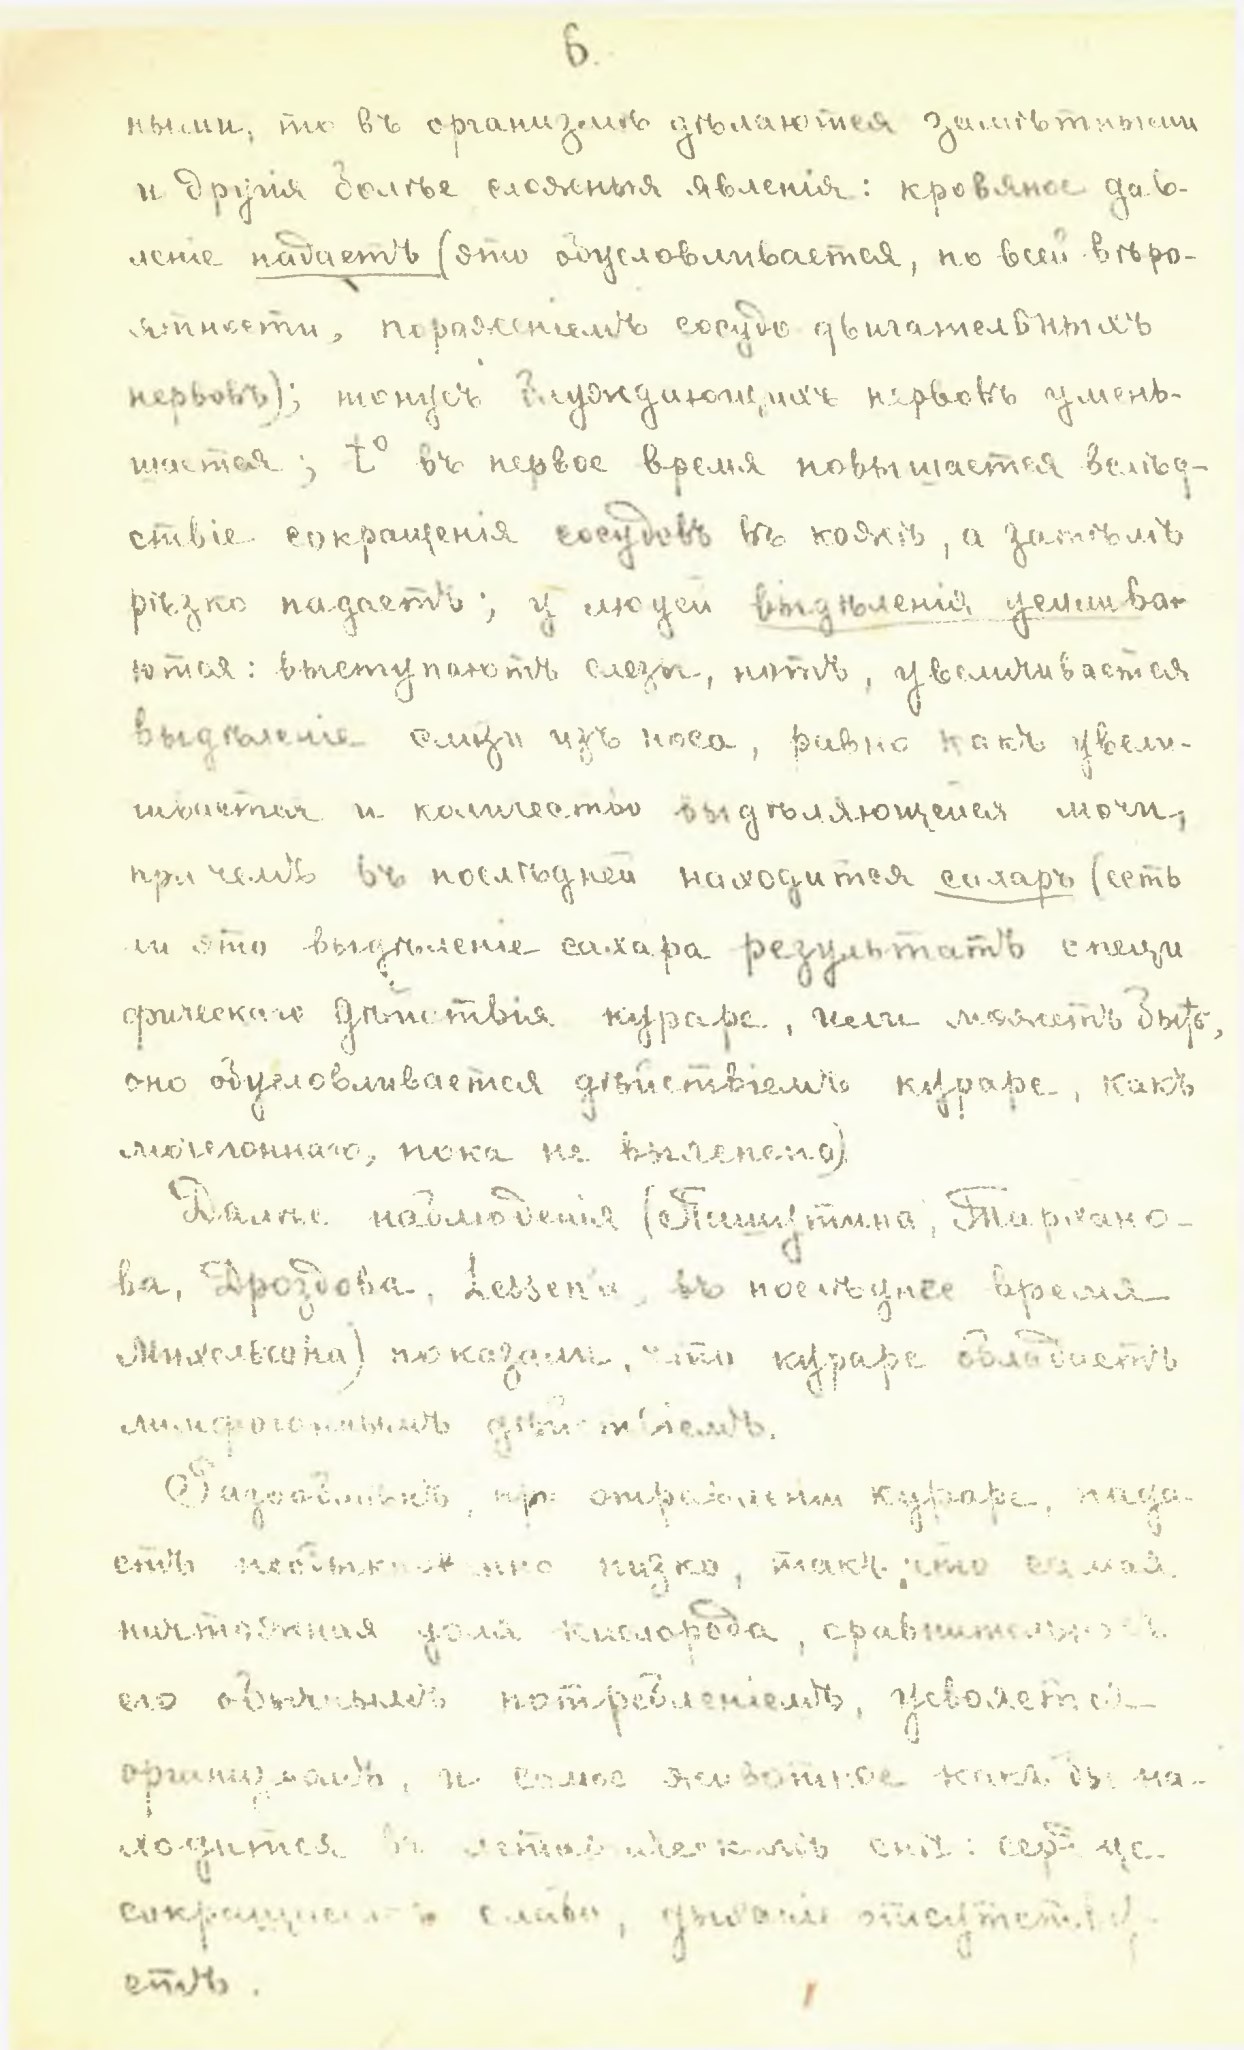 6.
ными, то въ организмѣ дѣлаются замѣтными
и другія болѣе сложныя явленія: кровяное дав-
леніе падаетъ (это обусловливается, по всей вѣро-
ятности, пораженіемъ сосудо двигательныхъ
нервовъ); тонусъ блуждающихъ нервовъ умень-
шается; t° въ первое время повышается вслѣд-
ствіе сокращенія сосудовъ въ кожѣ, а затѣмъ
рѣзко падаетъ; у людей выдѣленія усилива-
ются: выступаютъ слезы, потъ, увеличивается
выдѣленіе слизи изъ носа, равно какъ увели-
чивается и количество выдѣляющейся мочи,
при чемъ въ послѣдней находится сахаръ (есть
ли это выдѣленіе сахара результатъ специ
фическаго дѣйствія кураре, или можетъ быть,
оно обусловливается дѣйствіемъ кураре, какъ
мочегоннаго, пока не выяснено)
Далѣе наблюденія (Пашутина, Тархано-
ва, Дроздова, Lessen'a, въ послѣднее время
Михельсона) показали, что кураре обладаетъ
лимфогоннымъ дѣйствіемъ.
Газообмѣнъ, при отравленіи кураре, пада-
етъ необыкновенно низко, такъ что самая
ничтожная доля кислорода, сравнительно съ
его обычнымъ потребленіемъ, усвояется
организмомъ, и самое животное какъ бы на-
ходится въ летаргическомъ снѣ: сердце
сокращается слабо, дыханіе отсутству-
етъ.